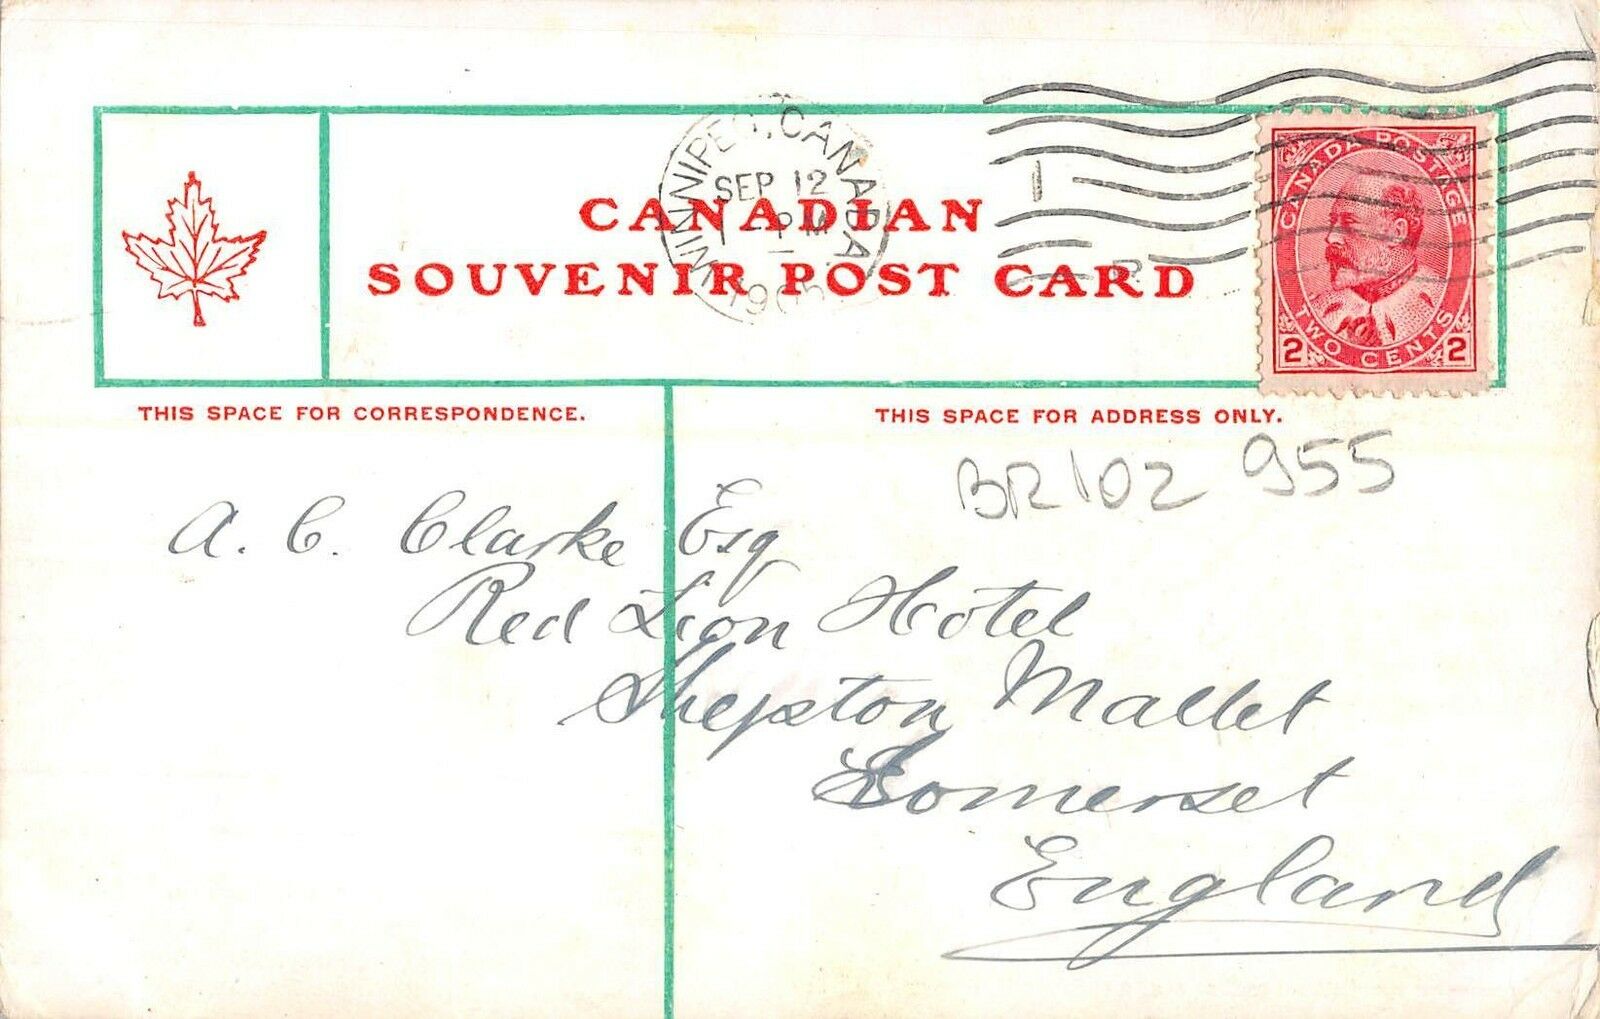 WINNIPEG, CANADA.
SEP 12
1 - PM
1905
CANADIAN
SOUVENIR POST CARD
CANADA POSTAGE
2 TWO CENTS 2
THIS SPACE FOR CORRESPONDENCE.
THIS SPACE FOR ADDRESS ONLY.
BR102 955
A. C. Clarke Esq
Red Lion Hotel
Shepton Mallet
Somerset
England